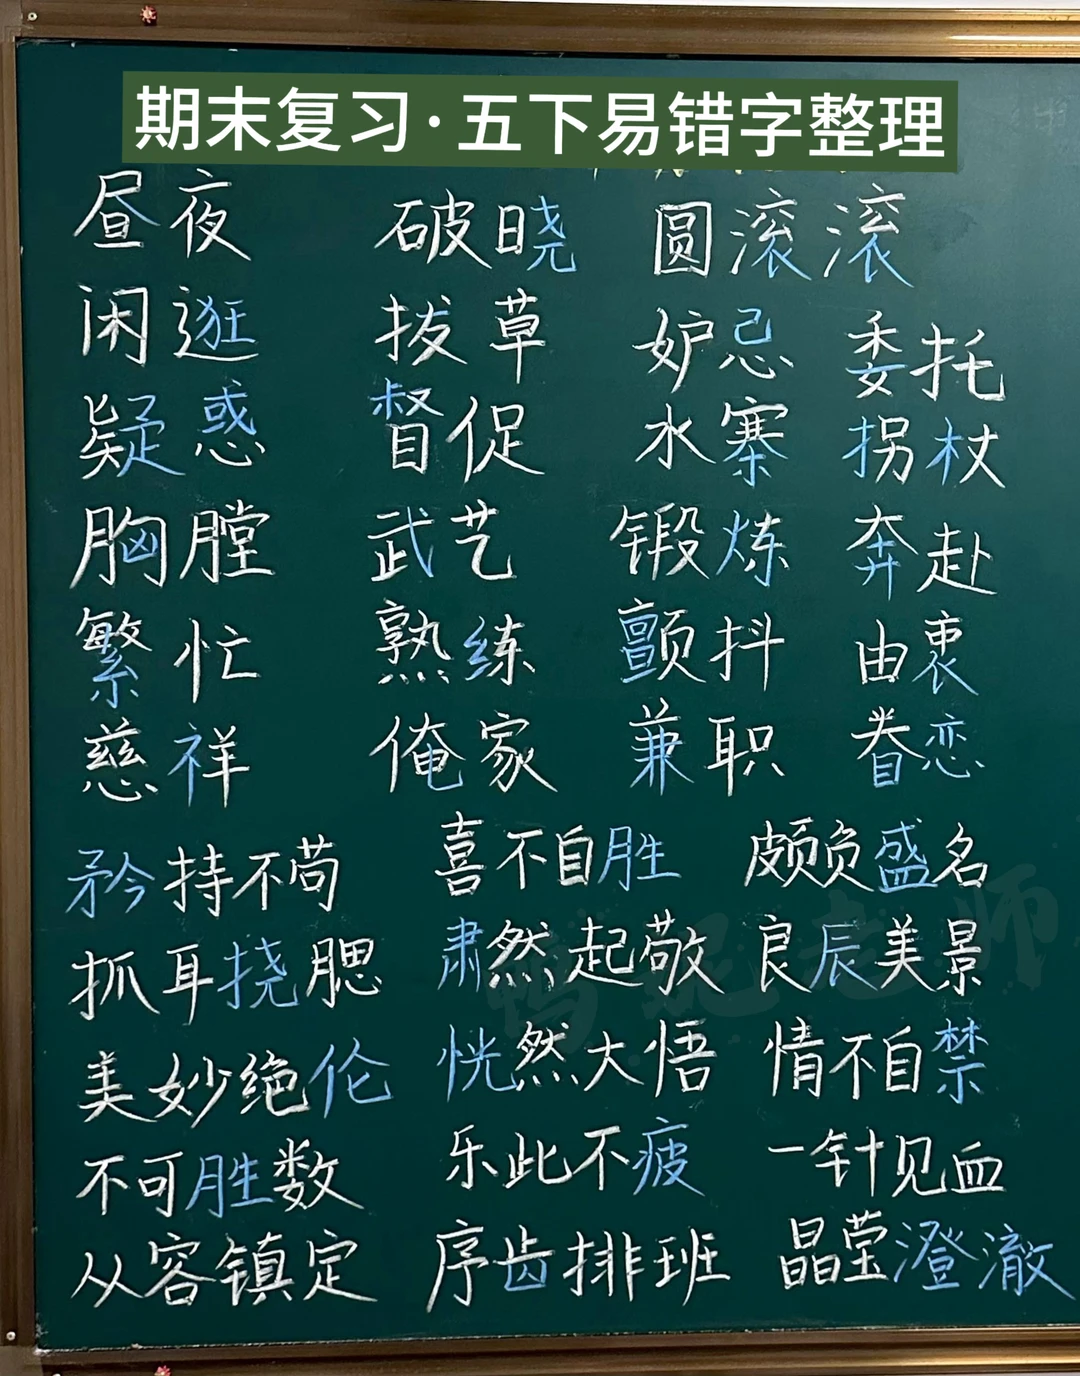 期末复习·五下易错字整理
昼夜 破晓 圆滚滚
闲逛 拔草 妒忌 委托
疑惑 督促 水寨 拐杖
胸膛 武艺 锻炼 奔赴
繁忙 熟练 颤抖 由衷
慈祥 俺家 兼职 眷恋
矜持不苟 喜不自胜 颇负盛名
抓耳挠腮 肃然起敬 良辰美景
美妙绝伦 恍然大悟 情不自禁
不可胜数 乐此不疲 一针见血
从容镇定 序齿排班 晶莹澄澈